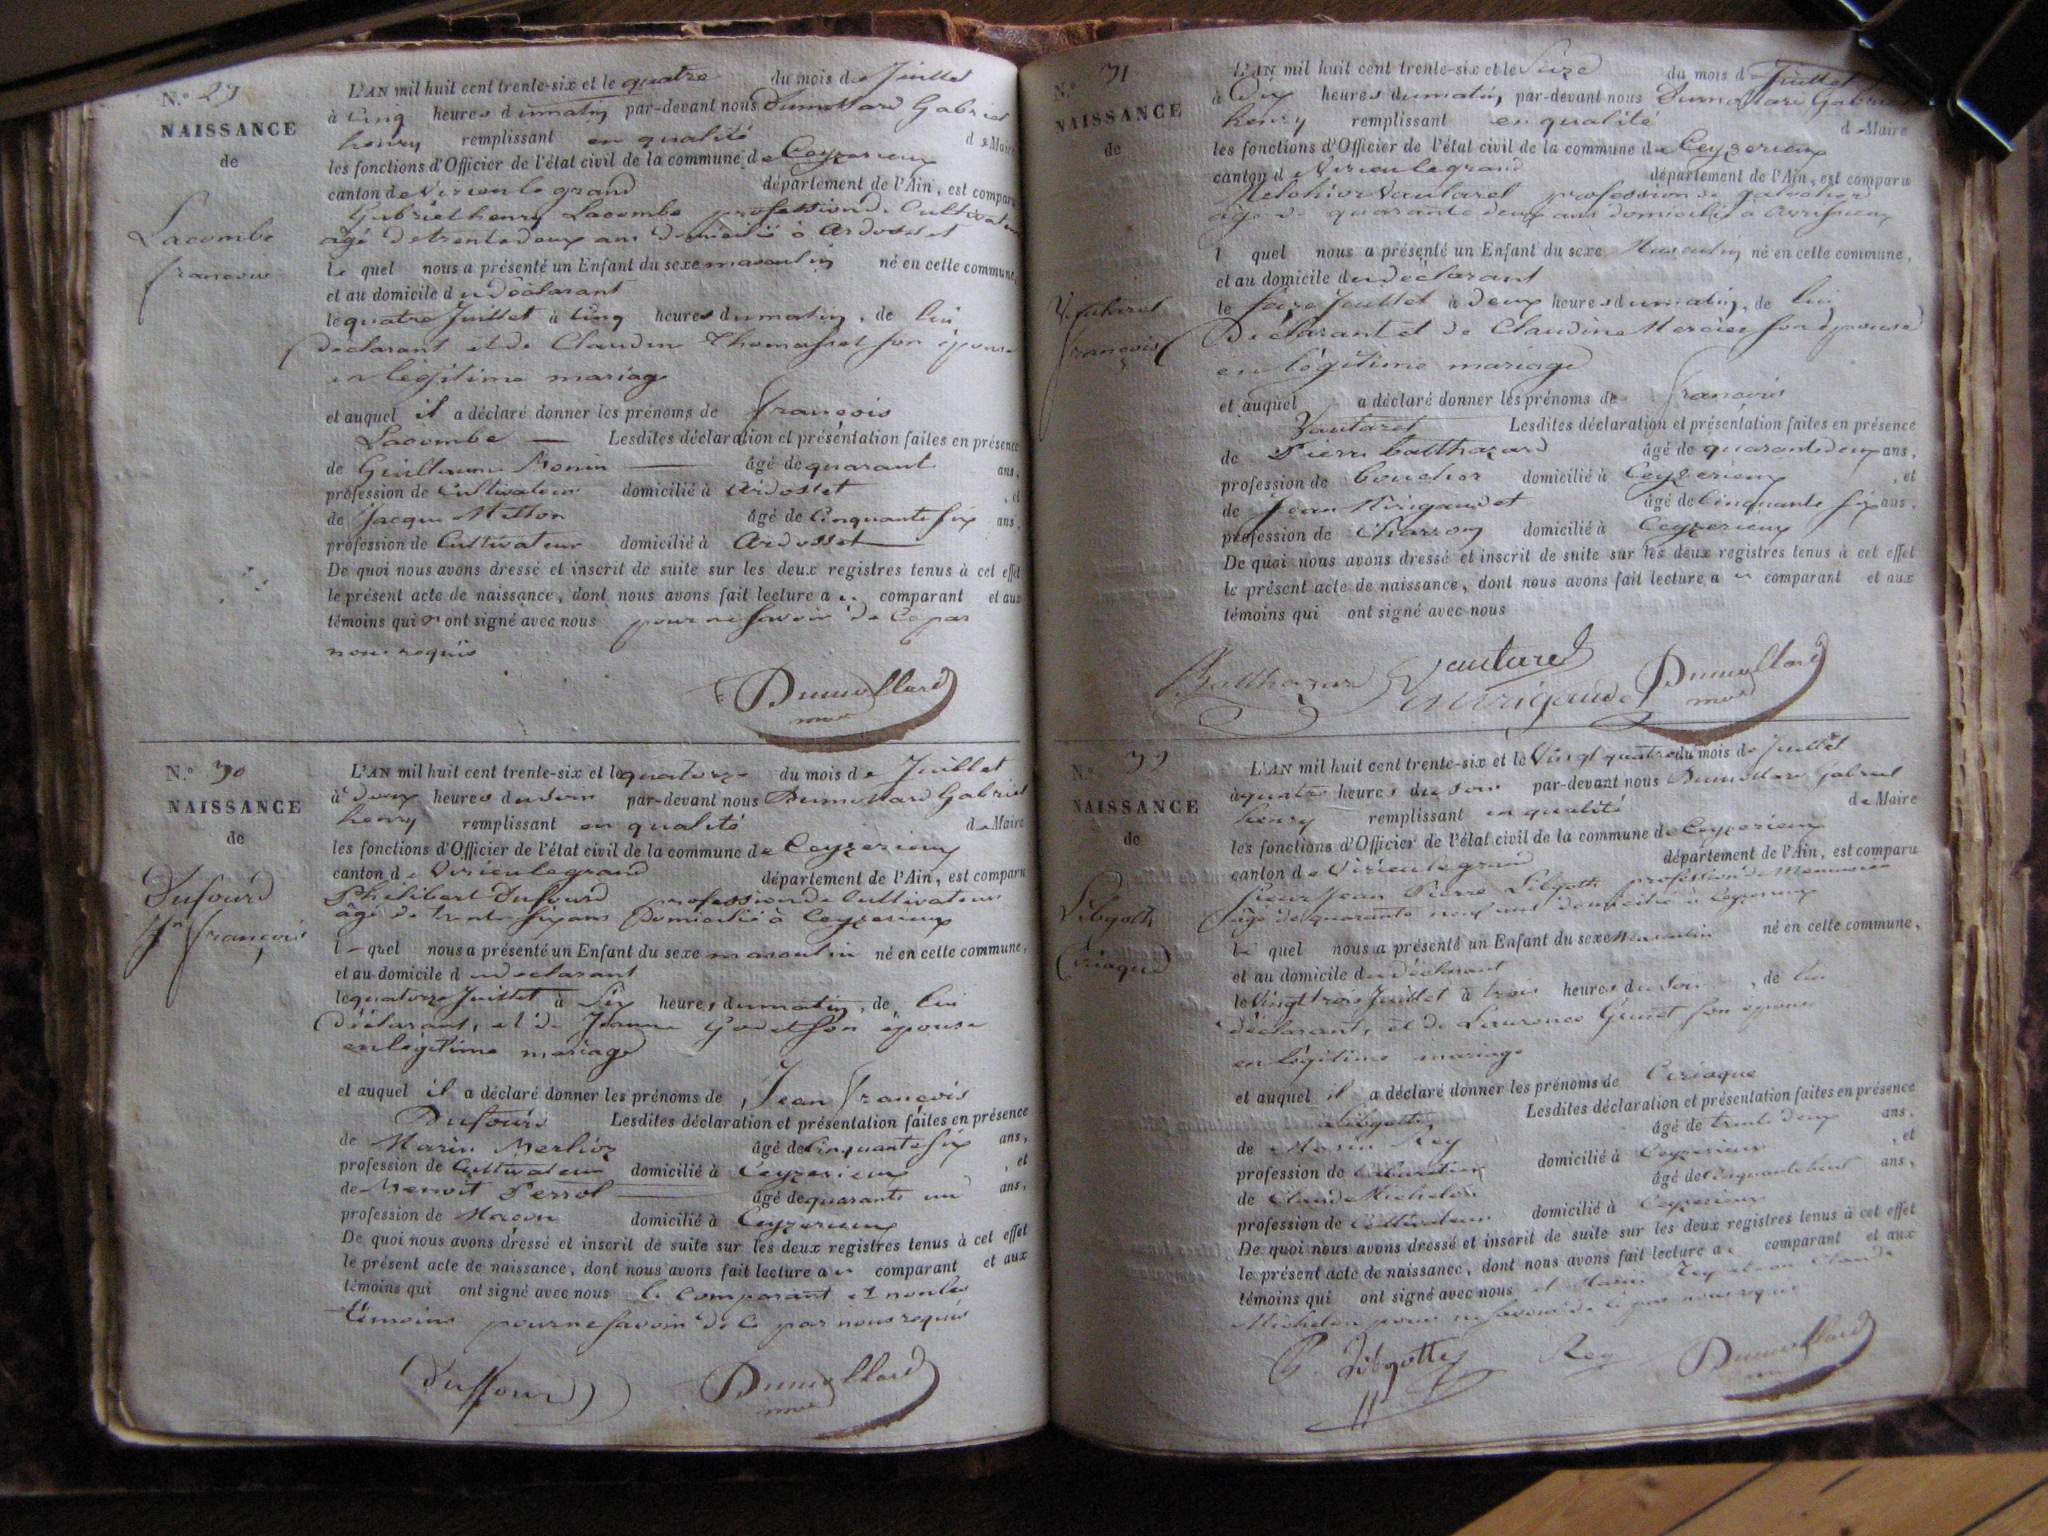 N.° 29
NAISSANCE
de
Lacombe
françois
L'AN mil huit cent trente-six et le quatre du mois de Juillet
à Cinq heures du matin par-devant nous Dumollard Gabriel
henry remplissant en qualité de Maire
les fonctions d'Officier de l'état civil de la commune de Ceyzerieux
canton de Virieu le grand département de l'Ain, est comparu
Gabriel henry Lacombe profession de Cultivateur
âgé de trente deux ans domicilié à Ardosset
le quel nous a présenté un Enfant du sexe masculin né en cette commune,
et au domicile du déclarant
le quatre Juillet à Cinq heures du matin, de lui
déclarant et de Claudine Thomasset son épouse
en legitime mariage
et auquel il a déclaré donner les prénoms de françois
Lacombe Lesdites déclaration et présentation faites en présence
de Guillaume Monin âgé de quarante ans,
profession de Cultivateur domicilié à Ardosset , et
de Jacque Mitton âgé de Cinquante six ans,
profession de Cultivateur domicilié à Ardosset
De quoi nous avons dressé et inscrit de suite sur les deux registres tenus à cet effet
le présent acte de naissance, dont nous avons fait lecture au comparant et aux
témoins qui n'ont signé avec nous pour ne savoir de Ce par
nous requis
Dumollard
N.° 30
NAISSANCE
de
Dufourd
Jn françois
L'AN mil huit cent trente-six et le quatorze du mois de Juillet
à deux heures du soir par-devant nous Dumollard Gabriel
henry remplissant en qualité de Maire
les fonctions d'Officier de l'état civil de la commune de Ceyzerieux
canton de Virieu le grand département de l'Ain, est comparu
Philibert Dufourd profession de Cultivateur
âgé de trente six ans domicilié à Ceyzerieux
le quel nous a présenté un Enfant du sexe masculin né en cette commune,
et au domicile du declarant
le quatorze Juillet à Six heures du matin, de lui
déclarant, et de Jeanne Godet son épouse
en legitime mariage
et auquel il a déclaré donner les prénoms de Jean françois
Dufourd Lesdites déclaration et présentation faites en présence
de Marin Merlioz âgé de Cinquante six ans,
profession de Cultivateur domicilié à Ceyzerieux , et
de Benoit Perrol âgé de quarante un ans,
profession de Macon domicilié à Ceyzerieux
De quoi nous avons dressé et inscrit de suite sur les deux registres tenus à cet effet
le présent acte de naissance, dont nous avons fait lecture au comparant et aux
témoins qui ont signé avec nous le Comparant et non les
témoins pour ne savoir de Ce par nous requis
Duffour Dumollard
N.° 31
NAISSANCE
de
Vautaret
françois
L'AN mil huit cent trente-six et le Seize du mois de Juillet
à Dix heures du matin, par-devant nous Dumollard Gabriel
henry remplissant en qualité de Maire
les fonctions d'Officier de l'état civil de la commune de Ceyzerieux
canton de Virieu le grand département de l'Ain, est comparu
Melchior Vautaret profession de
âgé de quarante deux ans domicilié à Avrissieux
l quel nous a présenté un Enfant du sexe Masculin né en cette commune,
et au domicile du déclarant
le Seize Juillet à Deux heures du matin, de lui
Déclarant et de Claudine Mercier son épouse
en légitime mariage
et auquel a déclaré donner les prénoms de francois
Vautaret Lesdites déclaration et présentation faites en présence
de Pierre balthazard âgé de quarante deux ans,
profession de boucher domicilié à Ceyzerieux , et
de Jean âgé de Cinquante six ans,
profession de Charron domicilié à Ceyzerieux
De quoi nous avons dressé et inscrit de suite sur les deux registres tenus à cet effet
le présent acte de naissance, dont nous avons fait lecture au comparant et aux
témoins qui ont signé avec nous
Balthazard Vautaret Dumollard
N.° 32
NAISSANCE
de
Libgotte
Ciriaque
L'AN mil huit cent trente-six et le Vingt quatre du mois de Juillet
à quatre heures du soir par-devant nous Dumollard Gabriel
henry remplissant en qualité de Maire
les fonctions d'Officier de l'état civil de la commune de Ceyzerieux
canton de Virieu le grand département de l'Ain, est comparu
Sieur Jean Pierre Libgotte profession de Menuisier
âgé de quarante neuf ans domicilié à Ceyzerieux
le quel nous a présenté un Enfant du sexe masculin né en cette commune,
et au domicile du déclarant
le Vingt trois Juillet à trois heures du soir, de lui
déclarant, et de Laurence Guiet son épouse
en légitime mariage
et auquel il a déclaré donner les prénoms de Ciriaque
Libgotte Lesdites déclaration et présentation faites en présence
de Marin Rey âgé de trente deux ans,
profession de domicilié à Ceyzerieux , et
de Claude Michelon âgé de Cinquante huit ans,
profession de Cultivateur domicilié à Ceyzerieux
De quoi nous avons dressé et inscrit de suite sur les deux registres tenus à cet effet
le présent acte de naissance, dont nous avons fait lecture au comparant et aux
témoins qui ont signé avec nous et Marin Rey et non Claude
Michelon pour ne savoir de Ce par nous requis
P. Libgotte Rey Dumollard